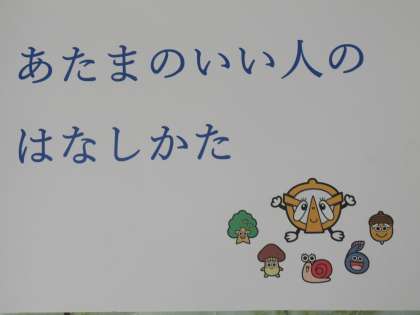 あたまのいい人の
はなしかた